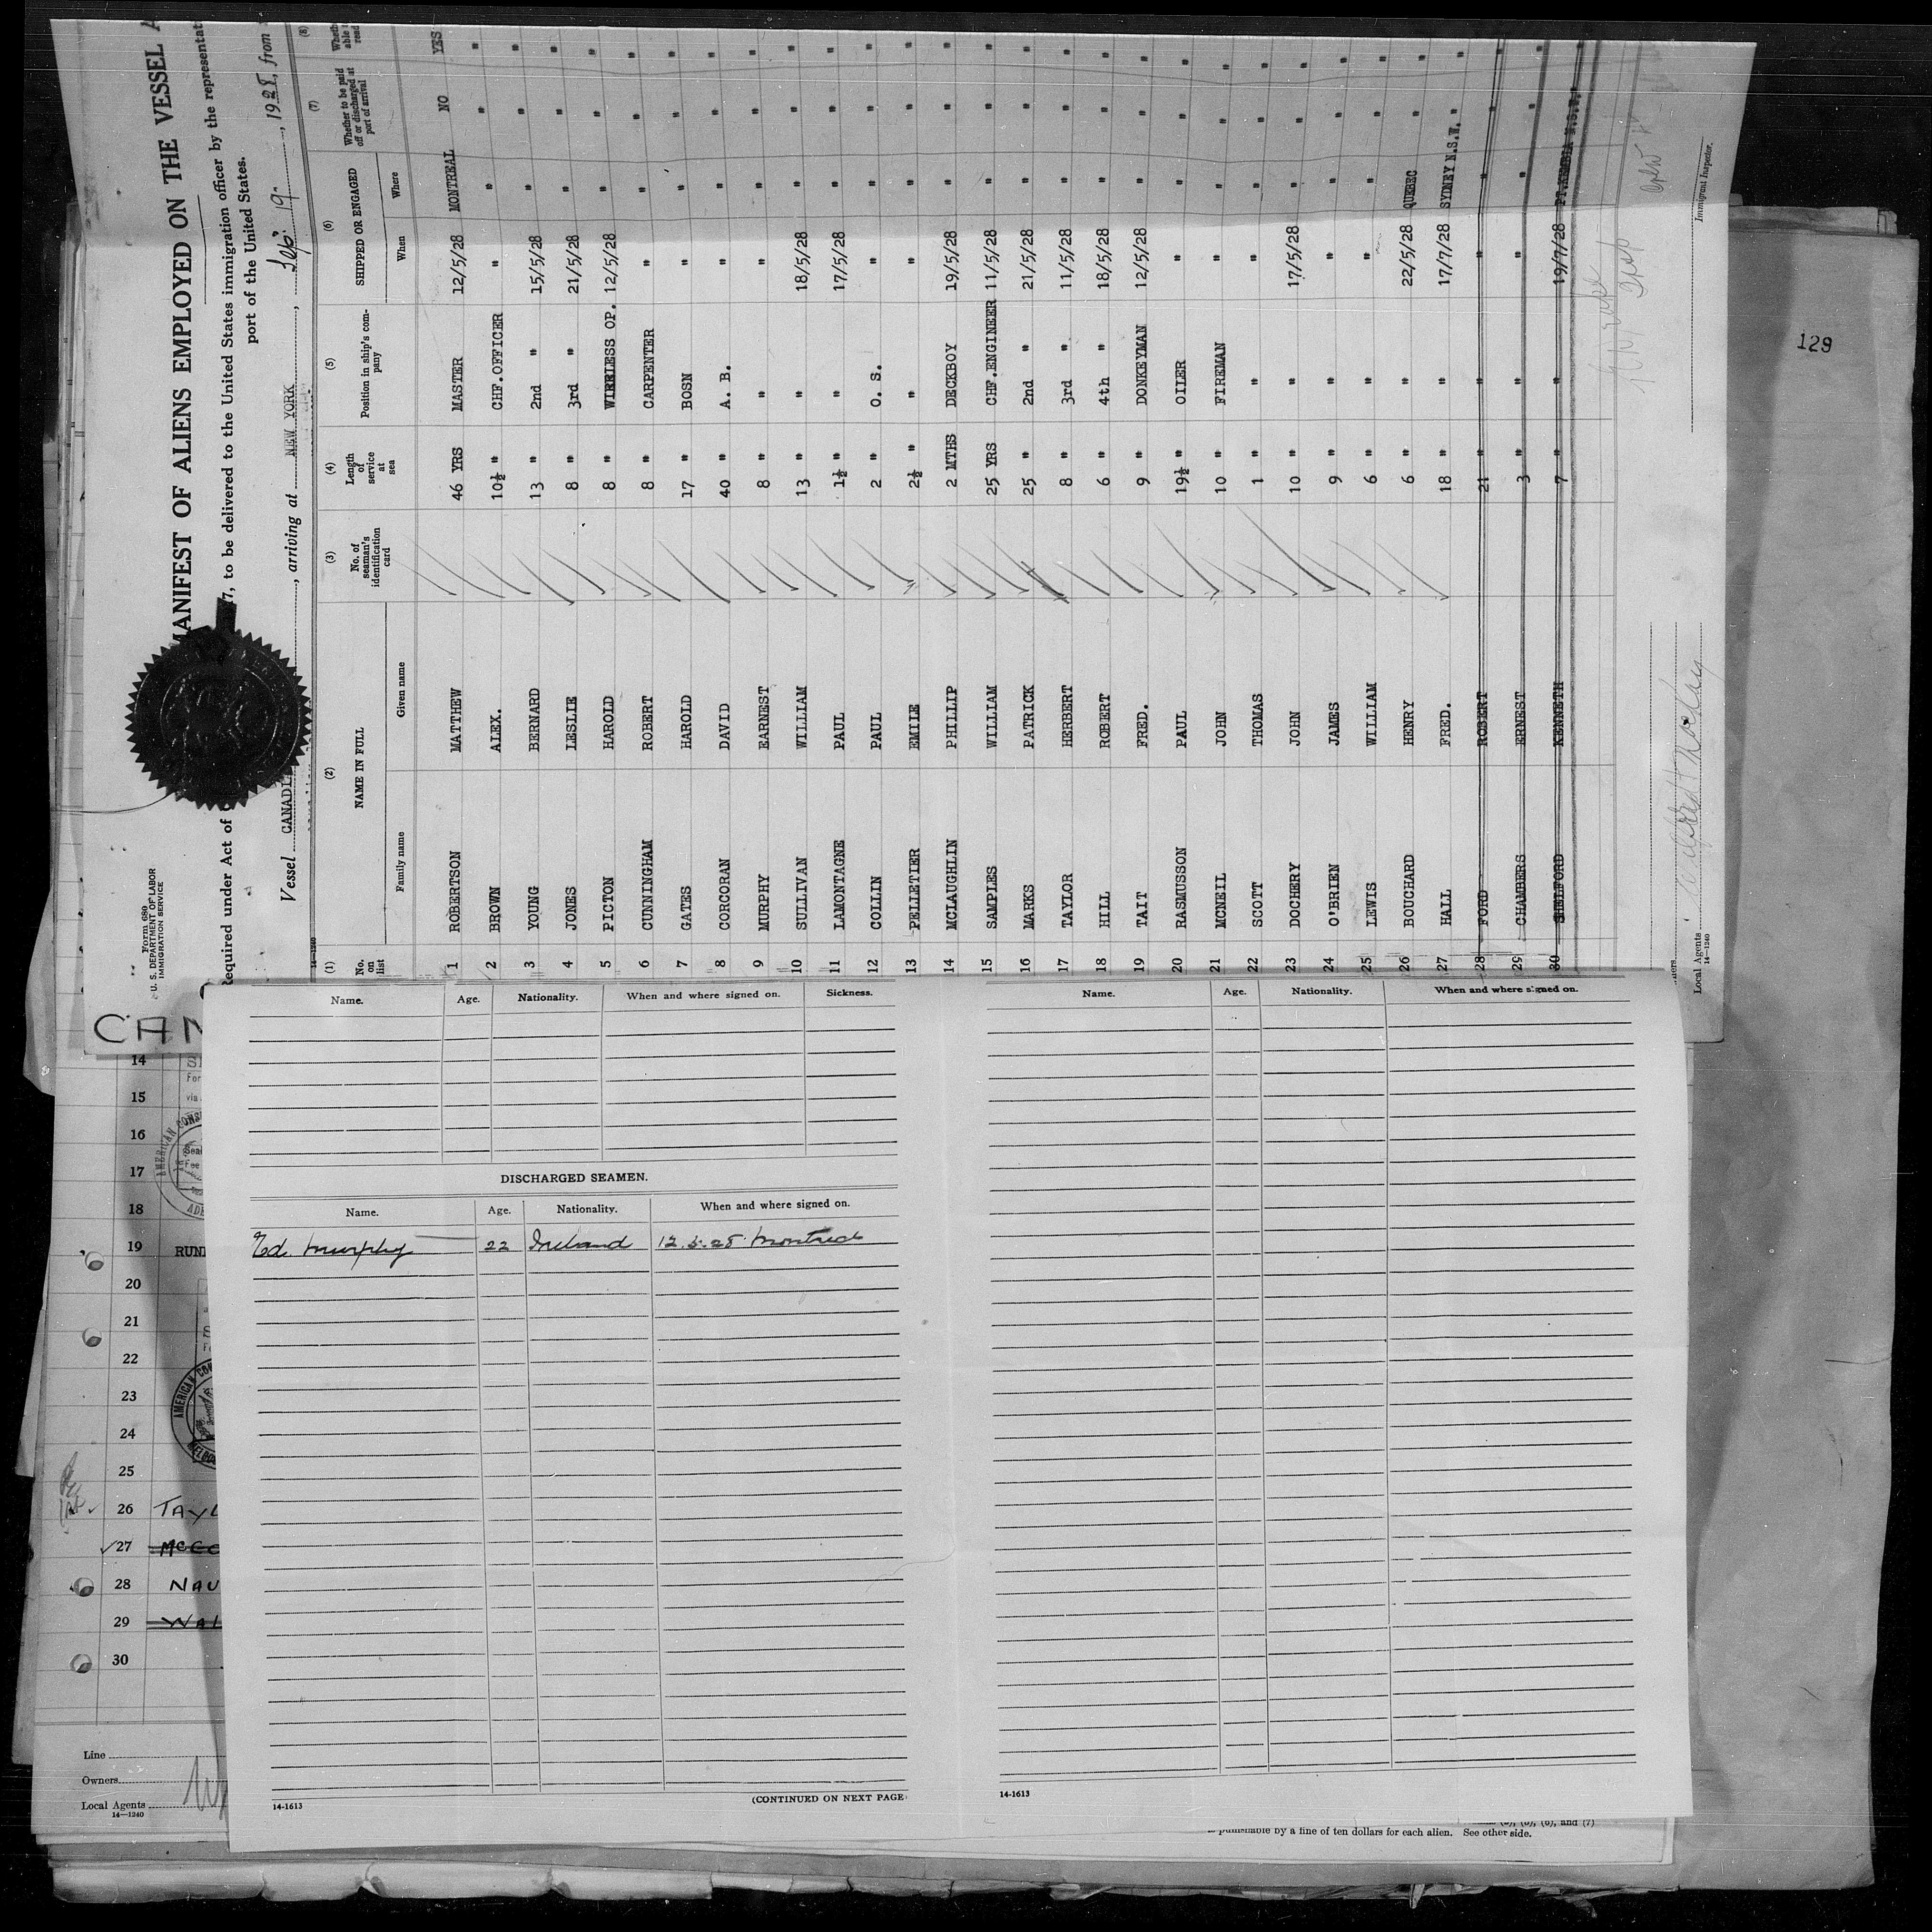 Form 680
U. S. DEPARTMENT OF LABOR
IMMIGRATION SERVICE
MANIFEST OF ALIENS EMPLOYED ON THE VESSEL A
Required under Act of 7, to be delivered to the United States immigration officer by the representat
port of the United States.
Vessel CANADI , arriving at NEW YORK , Sep. 19 , 1928, from
14-1240
(1) (2) (3) (4) (5) (6) (7) (8)
No. on list NAME IN FULL No. of seaman's identification card Length of service at sea Position in ship's company SHIPPED OR ENGAGED Whether to be paid off or discharged at port of arrival Wheth able read
Family name Given name When Where
1 ROBERTSON MATTHEW 46 YRS MASTER 12/5/28 MONTREAL NO YES
2 BROWN ALEX. 10½ " CHF.OFFICER " " " "
3 YOUNG BERNARD 13 " 2nd " 15/5/28 " " "
4 JONES LESLIE 8 " 3rd " 21/5/28 " " "
5 PICTON HAROLD 8 " WIRELESS OP. 12/5/28 " " "
6 CUNNINGHAM ROBERT 8 " CARPENTER " " " "
7 GATES HAROLD 17 " BOSN " " " "
8 CORCORAN DAVID 40 " A. B. " " " "
9 MURPHY EARNEST 8 " " " " " "
10 SULLIVAN WILLIAM 13 " " 18/5/28 " " "
11 LAMONTAGNE PAUL 1½ " " 17/5/28 " " "
12 COLLIN PAUL 2 " O. S. " " " "
13 PELLETIER EMILE 2½ " " " " " "
14 MCLAUGHLIN PHILLIP 2 MTHS DECKBOY 19/5/28 " " "
15 SAMPLES WILLIAM 25 YRS CHF.ENGINEER 11/5/28 " " "
16 MARKS PATRICK 25 " 2nd " 21/5/28 " " "
17 TAYLOR HERBERT 8 " 3rd " 11/5/28 " " "
18 HILL ROBERT 6 " 4th " 18/5/28 " " "
19 TAIT FRED. 9 " DONKEYMAN 12/5/28 " " "
20 RASMUSSON PAUL 19½ " OILER " " " "
21 MCNEIL JOHN 10 " FIREMAN " " " "
22 SCOTT THOMAS 1 " " " " " "
23 DOCHERY JOHN 10 " " 17/5/28 " " "
24 O'BRIEN JAMES 9 " " " " " "
25 LEWIS WILLIAM 6 " " " " " "
26 BOUCHARD HENRY 6 " " 22/5/28 QUEBEC " "
27 HALL FRED. 18 " " 17/7/28 SYDNEY N.S.W. " "
28 FORD ROBERT 21 " " " " " "
29 CHAMBERS ERNEST 3 " " " " " "
30 SHELFORD KENNETH 7 " " 19/7/28 PT.KEMBLA N.S.W. "
Local Agents
14-1240
Immigrant Inspector.
129
CAN
Name. Age. Nationality. When and where signed on. Sickness.
DISCHARGED SEAMEN.
Name. Age. Nationality. When and where signed on.
Ed. Murphy 22 Ireland 12.5.28 Montreal
14-1613
(CONTINUED ON NEXT PAGE
Name. Age. Nationality. When and where signed on.
14-1613
14
For
via
15
16
AMERICAN CONS
17
18
19 RUN
20
21
22
AMERICAN CO
23
24
25
26 TAYL
27 McCo
28 NAU
29 WAL
30
Line
Owners
Local Agents
14-1240
(6), and (7)
is punishable by a fine of ten dollars for each alien. See other side.